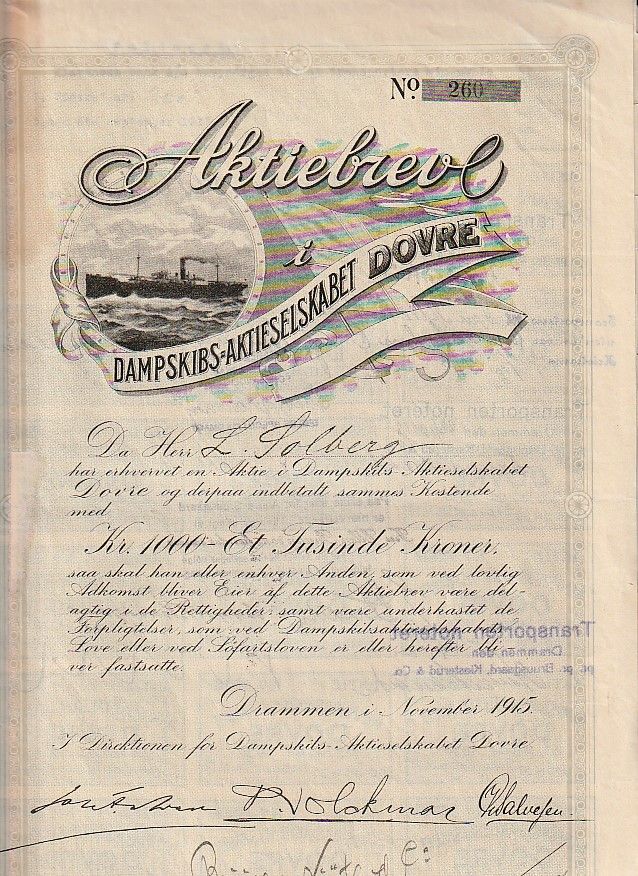 No. 260
Aktiebrev
i
DAMPSKIBS-AKTIESELSKABET DOVRE
Da Herr L. Solberg
har erhvervet en Aktie i Dampskibs-Aktieselskabet
Dovre og derpaa indbetalt sammes Kostende
med
Kr. 1000 - Et Tusinde Kroner,
saa skal han eller enhver Anden, som ved lovlig
Adkomst bliver Eier af dette Aktiebrev være del-
agtig i de Rettigheder, samt være underkastet de
Forpligtelser, som ved Dampskibsaktieselskabets
Love eller ved Söfartsloven er eller herefter bli-
ver fastsatte.
Transporten noteret
Drammen den
pr. pr. Bruusgaard, Kiøsterud & Co.
Drammen i November 1915.
I Direktionen for Dampskibs-Aktieselskabet Dovre.